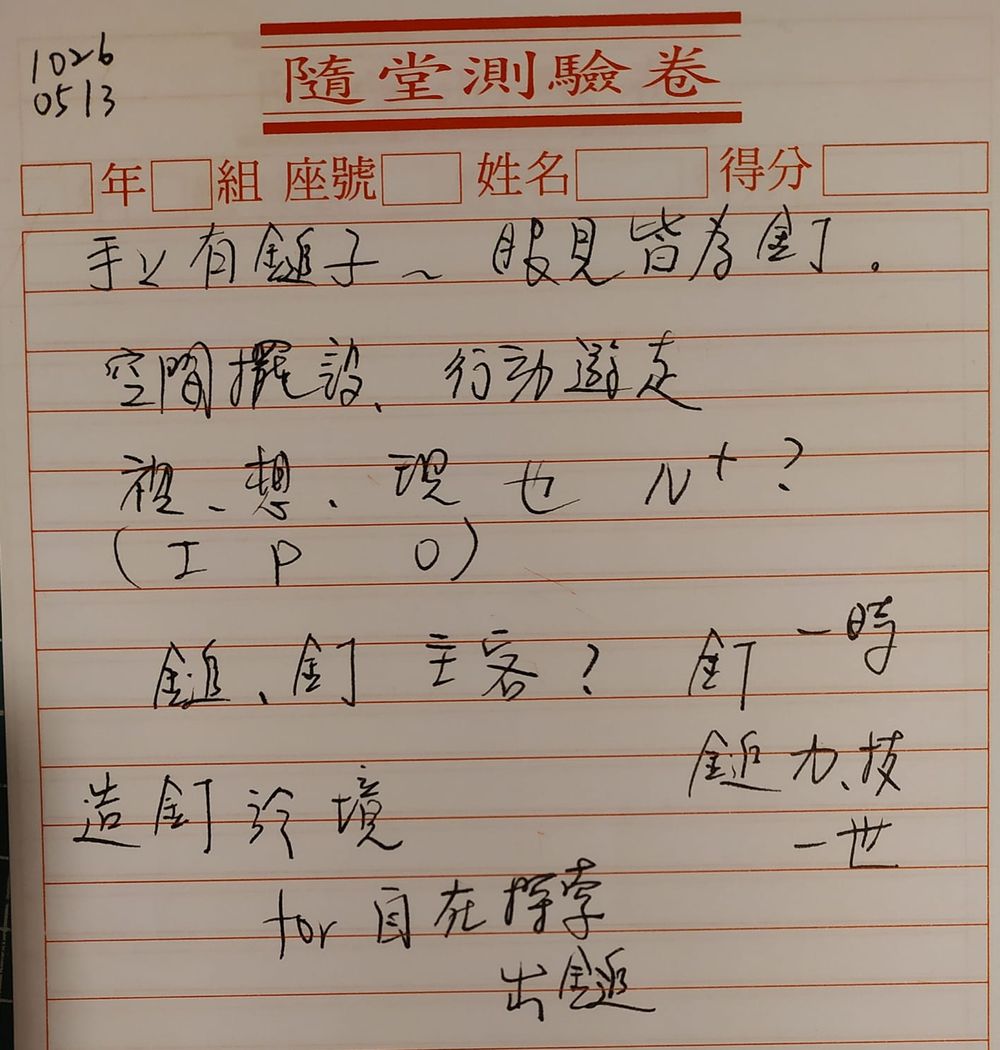 1026
0513
隨堂測驗卷
年 組 座號 姓名 得分
手上有鎚子~ 眼見皆為釘。
空間擺設、行動遊走
視、想、現 也 N+?
(I P O)
鎚、釘 主客? 釘一時
鎚力、技
一世
造釘於境
for 自在探索
出鎚